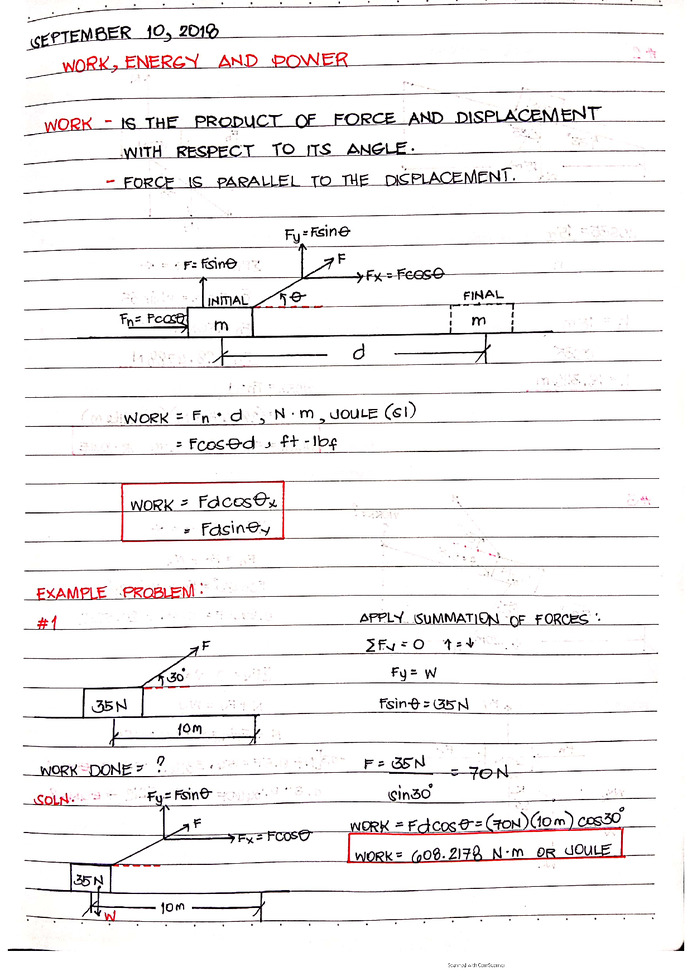 SEPTEMBER 10, 2018
WORK, ENERGY AND POWER
WORK - IS THE PRODUCT OF FORCE AND DISPLACEMENT
WITH RESPECT TO ITS ANGLE.
- FORCE IS PARALLEL TO THE DISPLACEMENT.
Fy = Fsinθ
F = Fsinθ
F
Fx = Fcosθ
INITIAL
θ
FINAL
Fn = Fcosθ
m
m
d
WORK = Fn · d , N · m , JOULE (SI)
= Fcosθd , ft - lbf
WORK = Fdcosθx
= Fdsinθy
EXAMPLE PROBLEM:
#1
F
30°
35N
10m
WORK DONE = ?
SOLN.
Fy = Fsinθ
F
Fx = Fcosθ
35N
W
10m
APPLY SUMMATION OF FORCES:
ΣFv = 0 ↑=↓
Fy = W
Fsinθ = 35N
F = 35N = 70N
sin30°
WORK = Fdcosθ = (70N)(10m) cos30°
WORK = 608.2178 N·m OR JOULE
Scanned with CamScanner